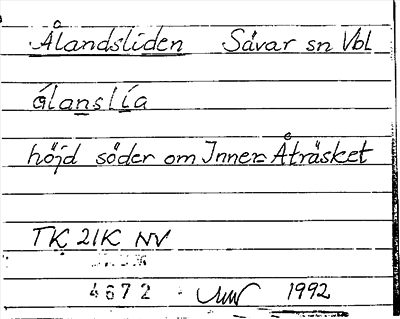 Ålandsliden Sävar sn Vbl
ólanslía
höjd söder om Inner=Åträsket
TK 21K NV
4672 - 1992